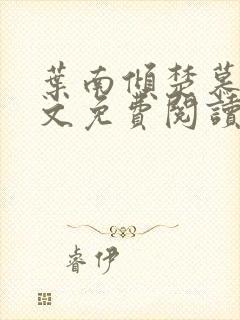 葉南傾楚慕
文免費閱讀
睿伊